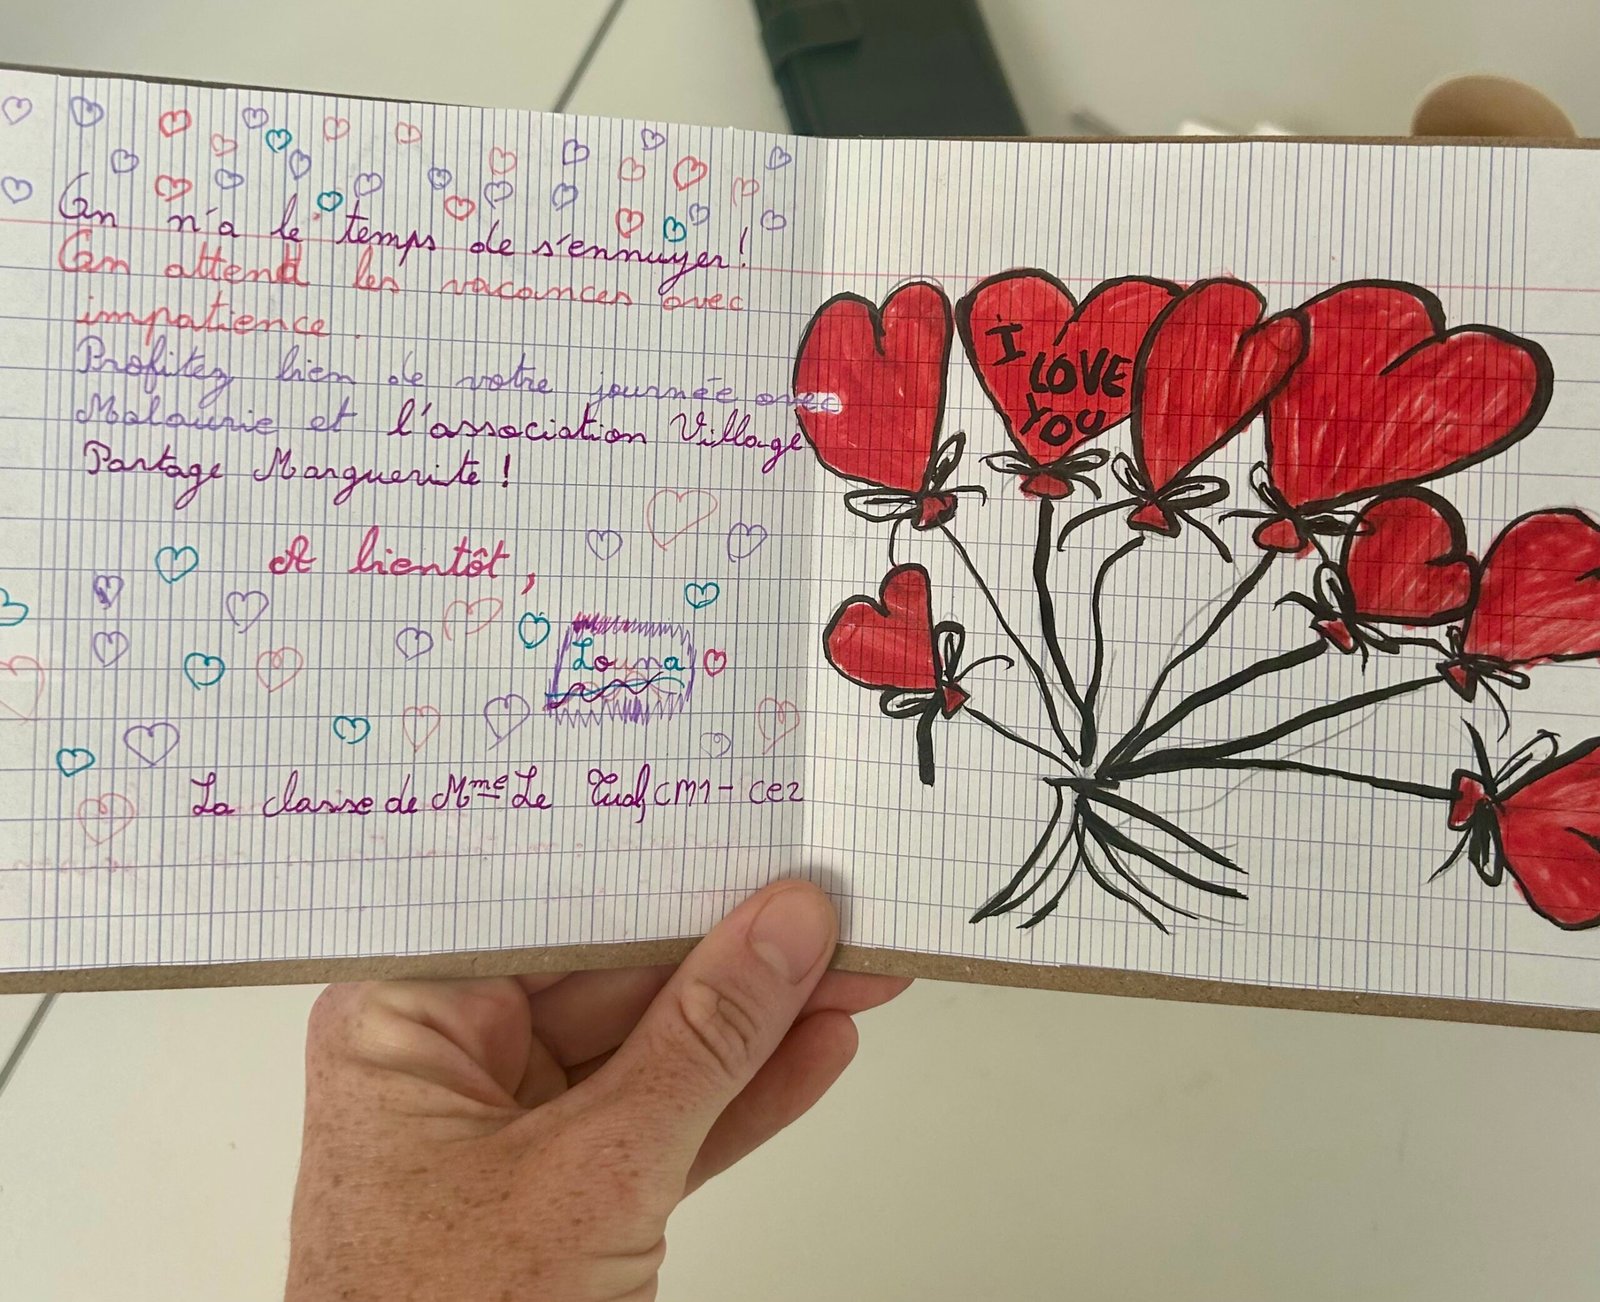 On n'a le temps de s'ennuyer!
On attend les vacances avec
impatience.
Profitez bien de votre journée avec
Malaurie et l'association Village
Partage Marguerite !
A bientôt,
Louna
La classe de Mme Le CM1- CE2
I
LOVE
YOU